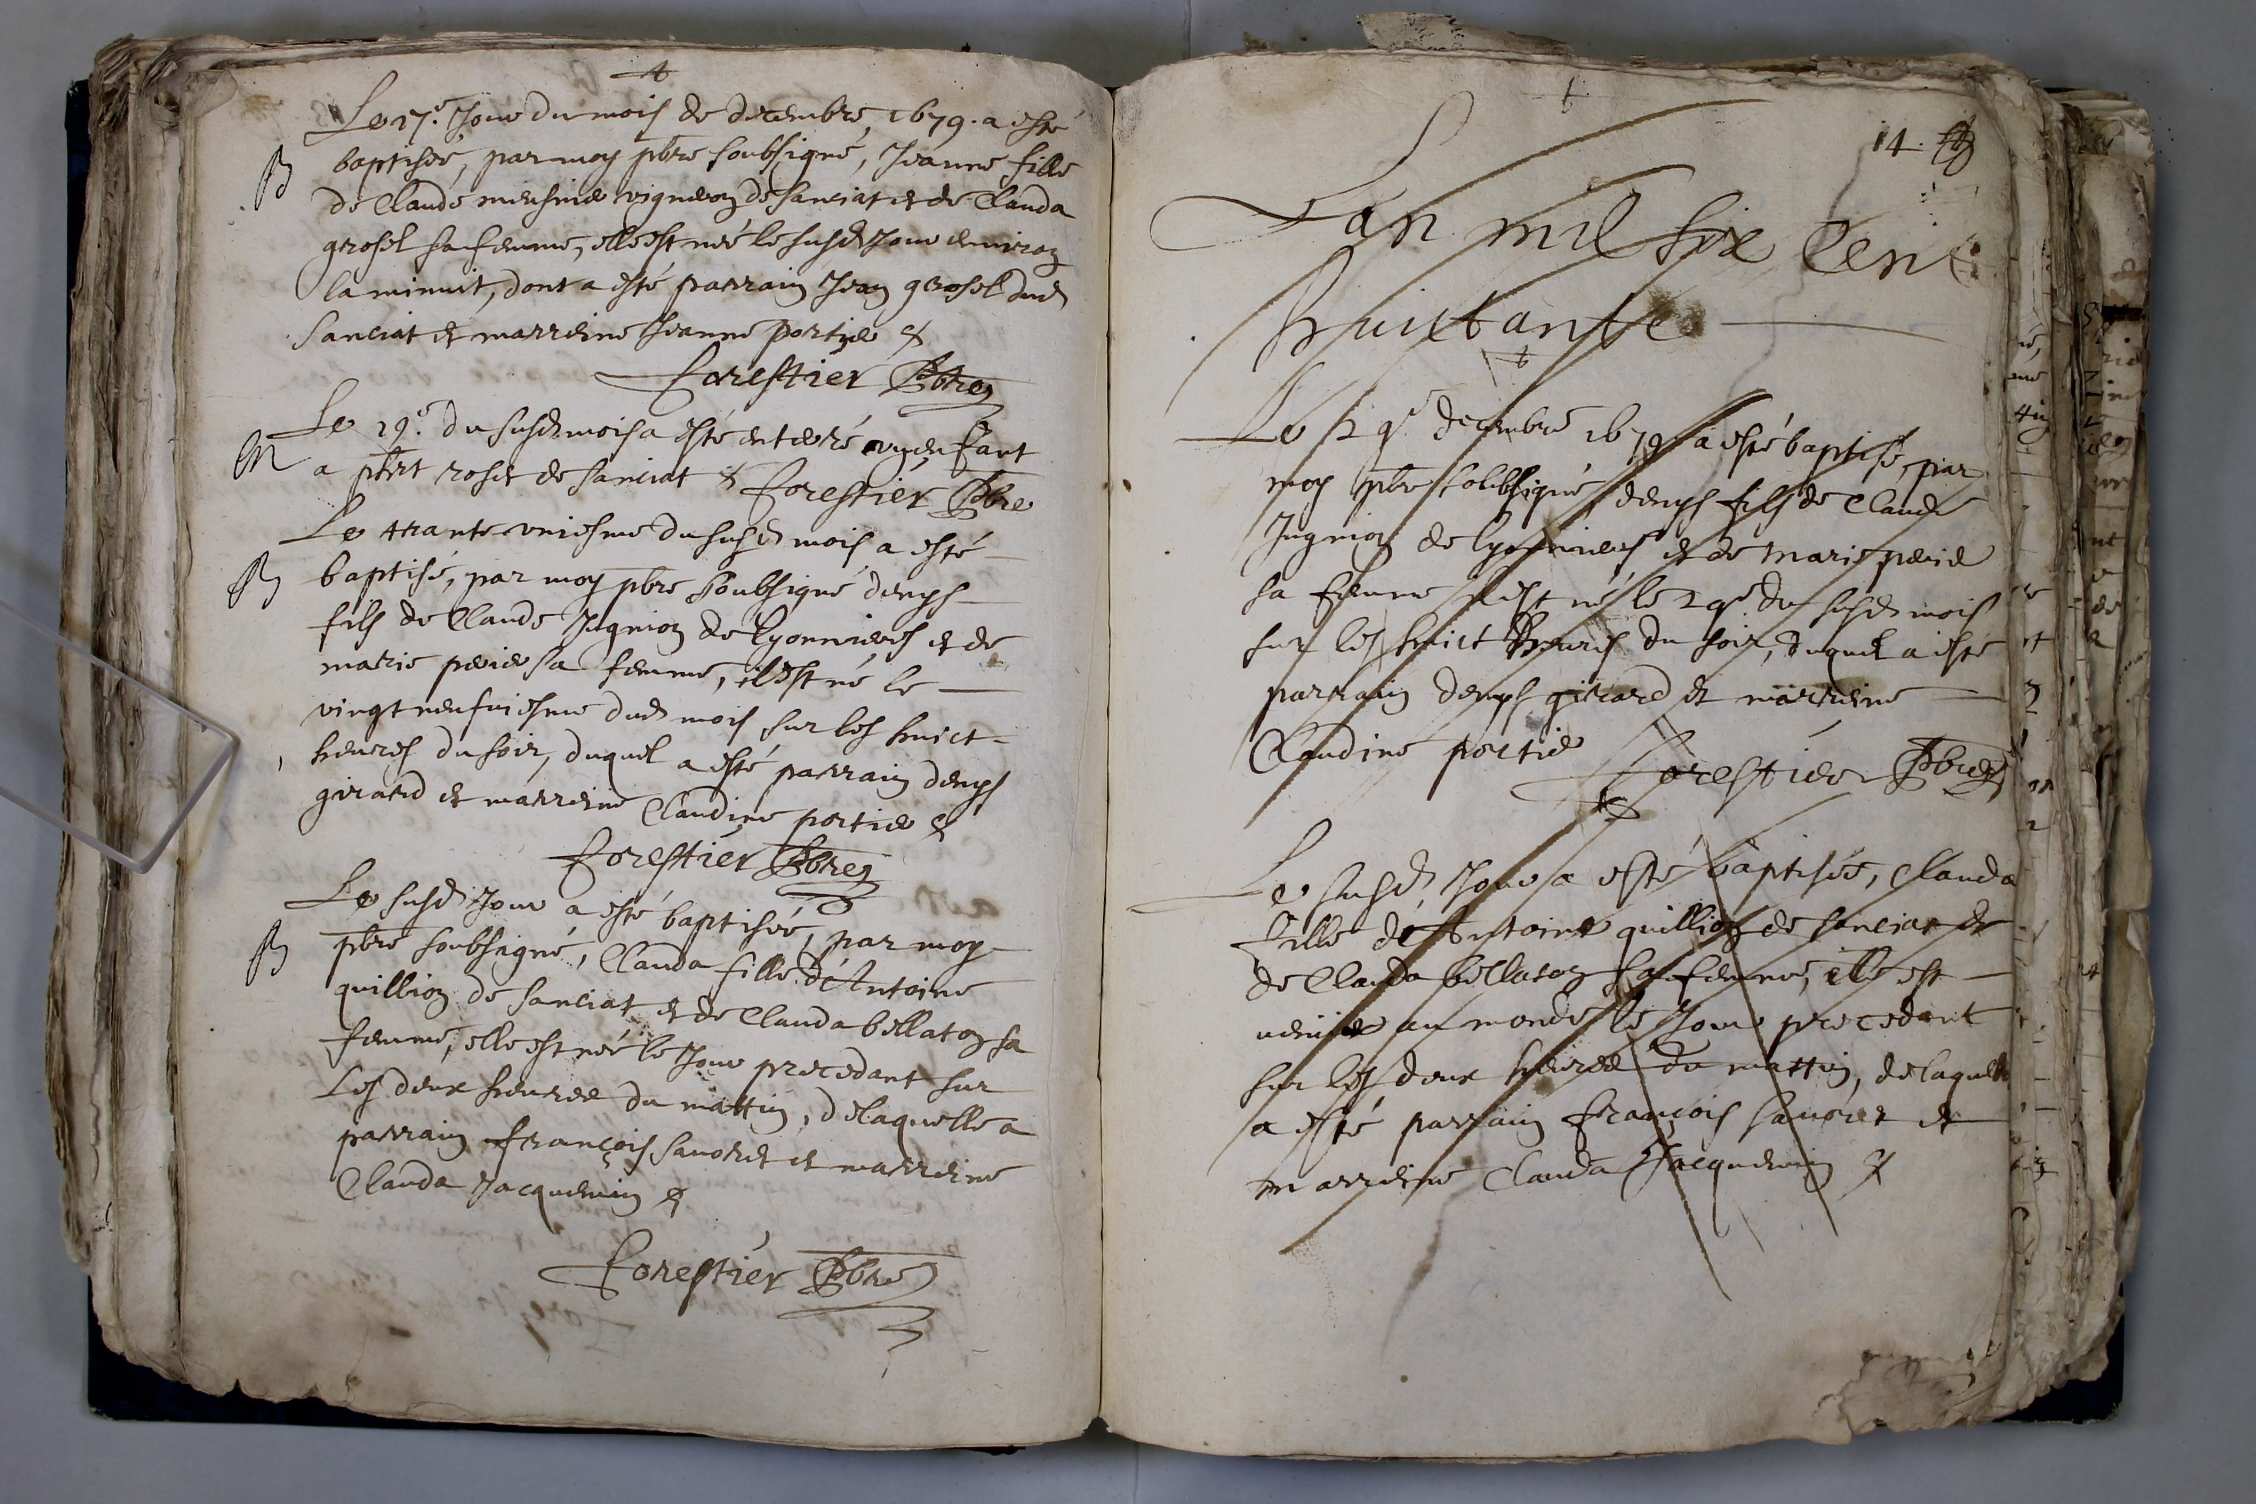 Le 27.e Jour du mois de decembre 1679. a esté
B baptisée, par moy pbre soubsigné, Jeanne fille
de Claude vigneron de Sanciat et de Clauda
grosel sa femme, elle est née le susd Jour environ
la minuit, dont a esté parrain Jean grosel dud
Sanciat et marreine Jeanne portier &
Forestier Pbre
Le 29.e du susd mois a esté enterré un enfant
M a roset de Sanciat & Forestier Pbre
Le trante uniesme du susd mois a esté
B baptisé, par moy pbre soubsigné denys
fils de Claude Jugnion de lyonnieres et de
marie perier sa femme, il est né le
vingt neufviesme dud mois sur les huict
heures du soir, duquel a esté parrain denys
girard et marreine Claudine portier &
Forestier Pbre
Le susd Jour a esté baptisée, par moy
B pbre soubsigné, Clauda fille d'Antoine
quillion de Sanciat et de Clauda bellaton sa
femme, elle est née le Jour precedant sur
les deux heures du mattin, de laquelle a
parrain françois savoret et marreine
Clauda Jacquemin &
Forestier Pbre
14.
L'an mil six Cent
huictante
Le 29e decembre 1679 a esté baptisé, par
moy pbre soubsigné, denys fils de Claude
Jugnion de lyonnieres et de Marie perier
sa femme il est né le 29e du susd mois
sur les huict heures du soir, duquel a esté
parrain denys girard et marreine
Claudine portier
Forestier Pbre
Le susd Jour a esté baptisée, Clauda
fille d'Antoine quillion de Sanciat et
de Clauda bellaton sa femme, elle est
venue au monde le Jour precedant
sur les deux heures du mattin, de laquelle
a esté parrain françois savoret et
marreine Clauda Jacquemin &